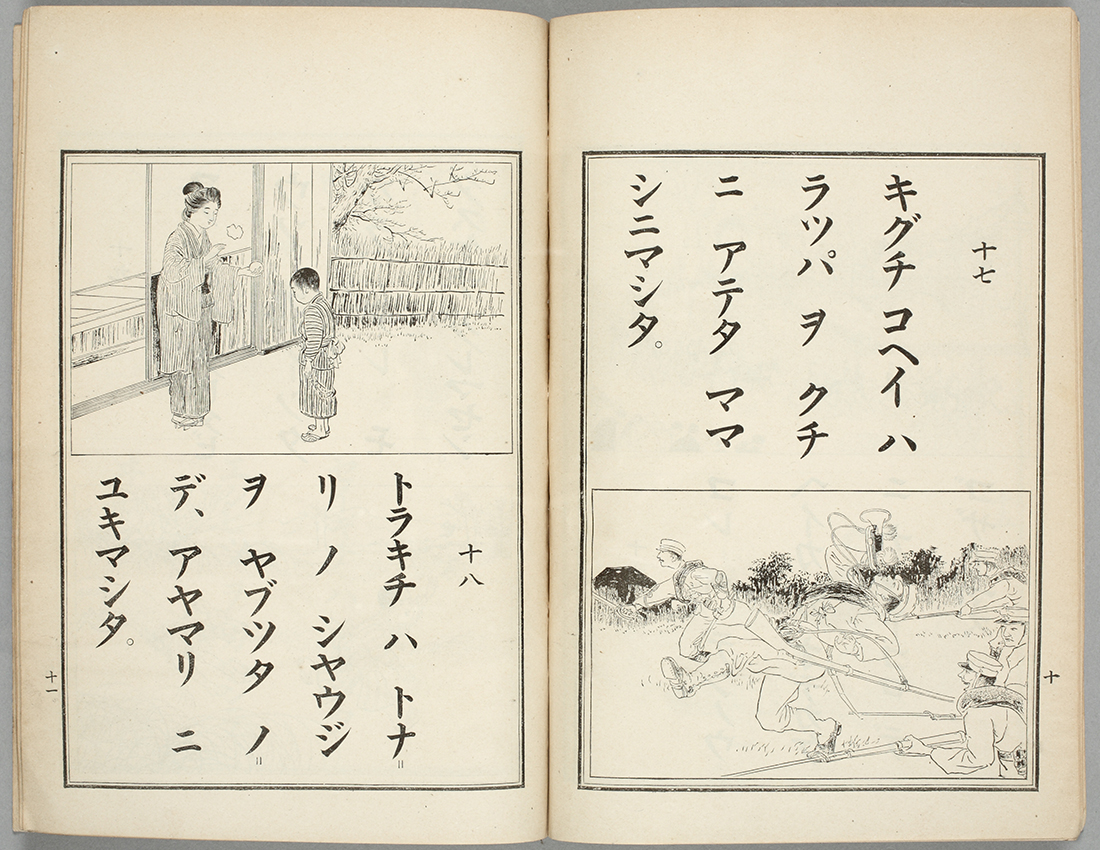 十七
キグチ コヘイ ハ
ラツパ ヲ クチ
ニ アテタ ママ
シニマシタ。
十
十八
トラキチ ハ トナ＝
リ ノ シヤウジ
ヲ ヤブツタ ノ＝
デ、アヤマリ ニ
ユキマシタ。
十一